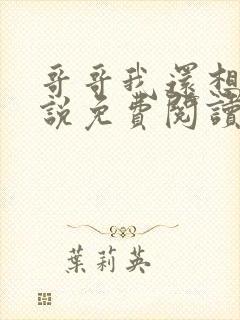 哥哥我還想
說免費閱讀
葉莉英